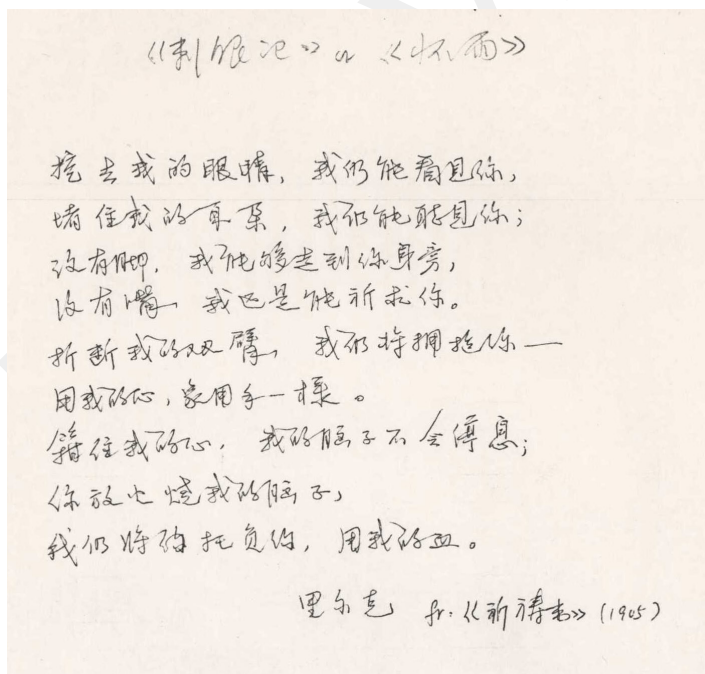 《刺 》 《怀雨》
挖去我的眼睛，我仍能看见你，
堵住我的耳朵，我仍能听见你；
没有脚，我能够走到你身旁，
没有嘴，我还是能祈求你。
折断我的双臂，我仍将拥抱你—
用我的心，象用手一様。
箍住我的心，我的脑子不会停息；
你放火烧我的脑子，
我仍将 托负你，用我的血。
里尔克 fr.《祈祷书》(1905)